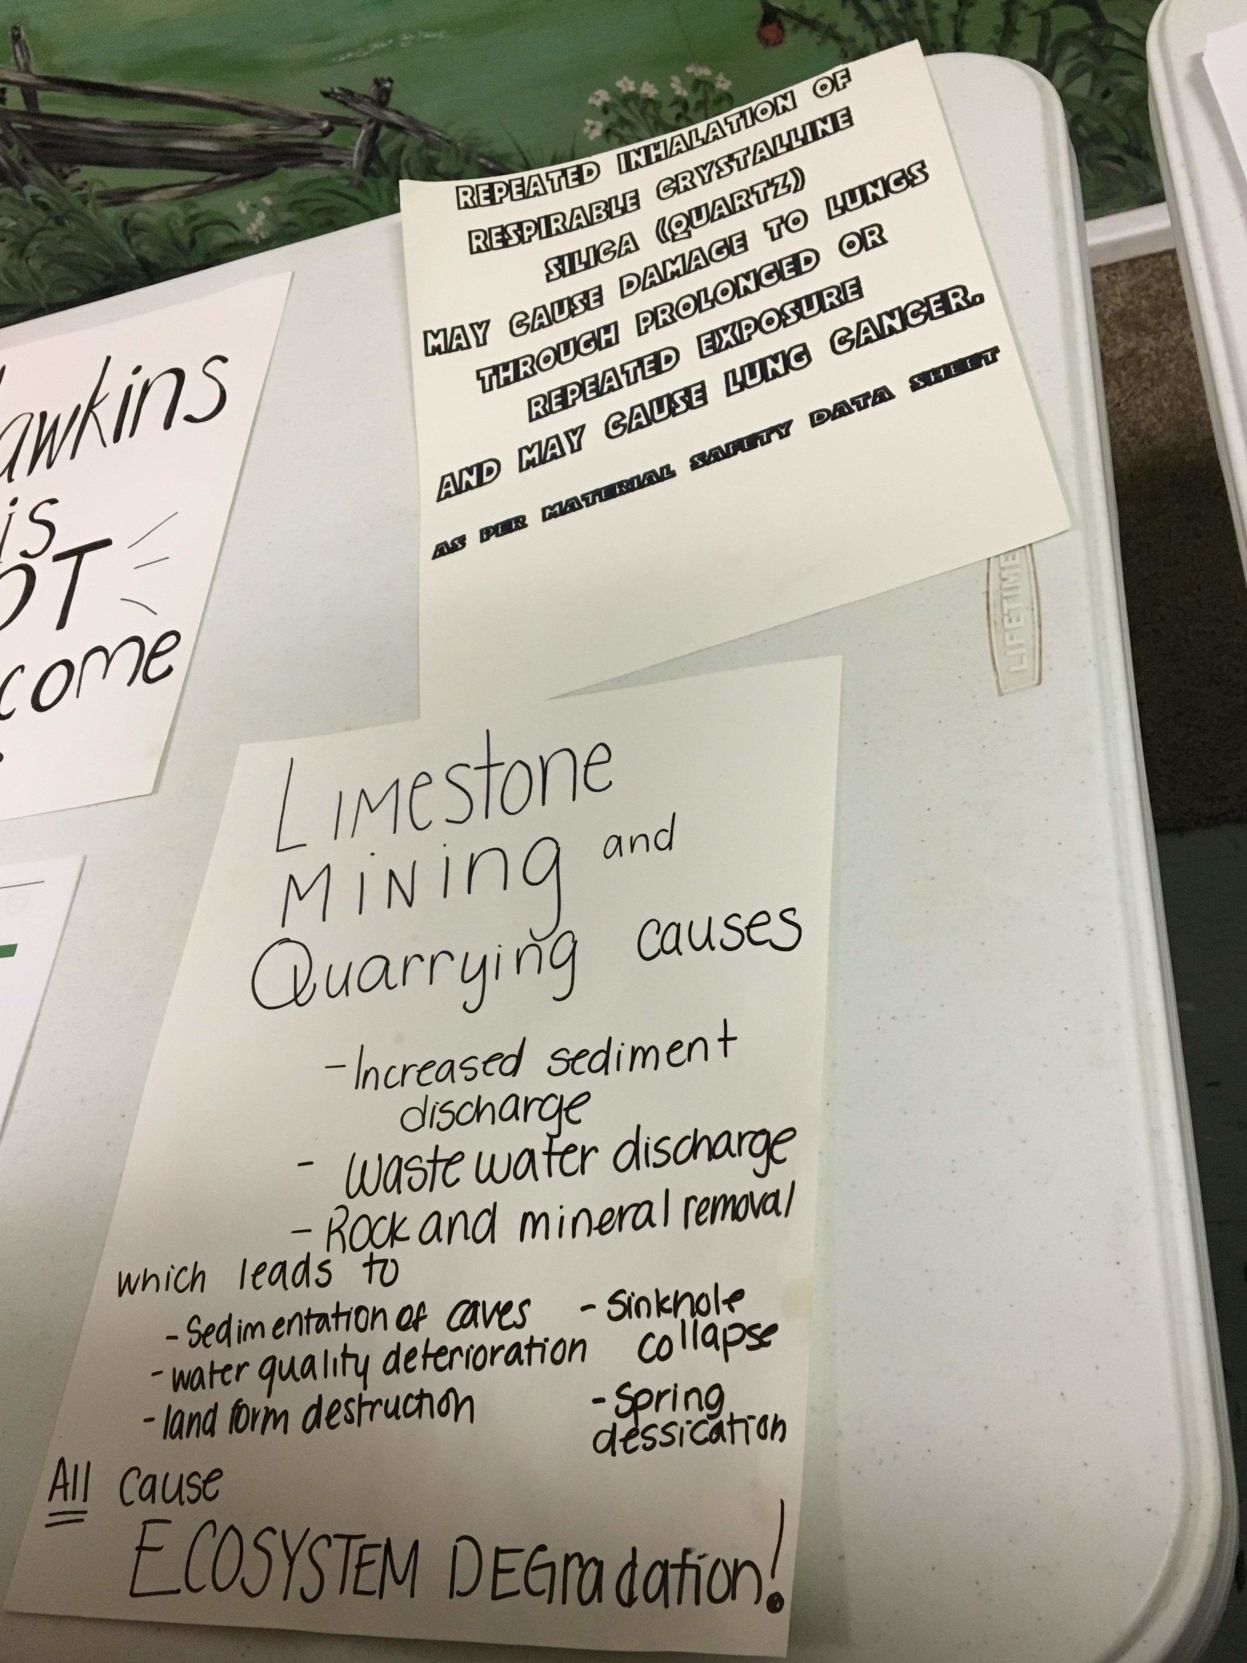 REPEATED INHALATION OF
RESPIRABLE CRYSTALLINE
SILICA (QUARTZ)
MAY CAUSE DAMAGE TO LUNGS
THROUGH PROLONGED OR
REPEATED EXPOSURE
AND MAY CAUSE LUNG CANCER.
AS PER MATERIAL SAFETY DATA SHEET
awkins
is
OT
come
LIFETIME
Limestone
Mining and
Quarrying causes
- Increased sediment
discharge
- waste water discharge
- Rock and mineral removal
which leads to
- Sedimentation of caves
- water quality deterioration
- land form destruction
- Sinkhole
collapse
- Spring
dessication
All cause
ECOSYSTEM DEGradation!